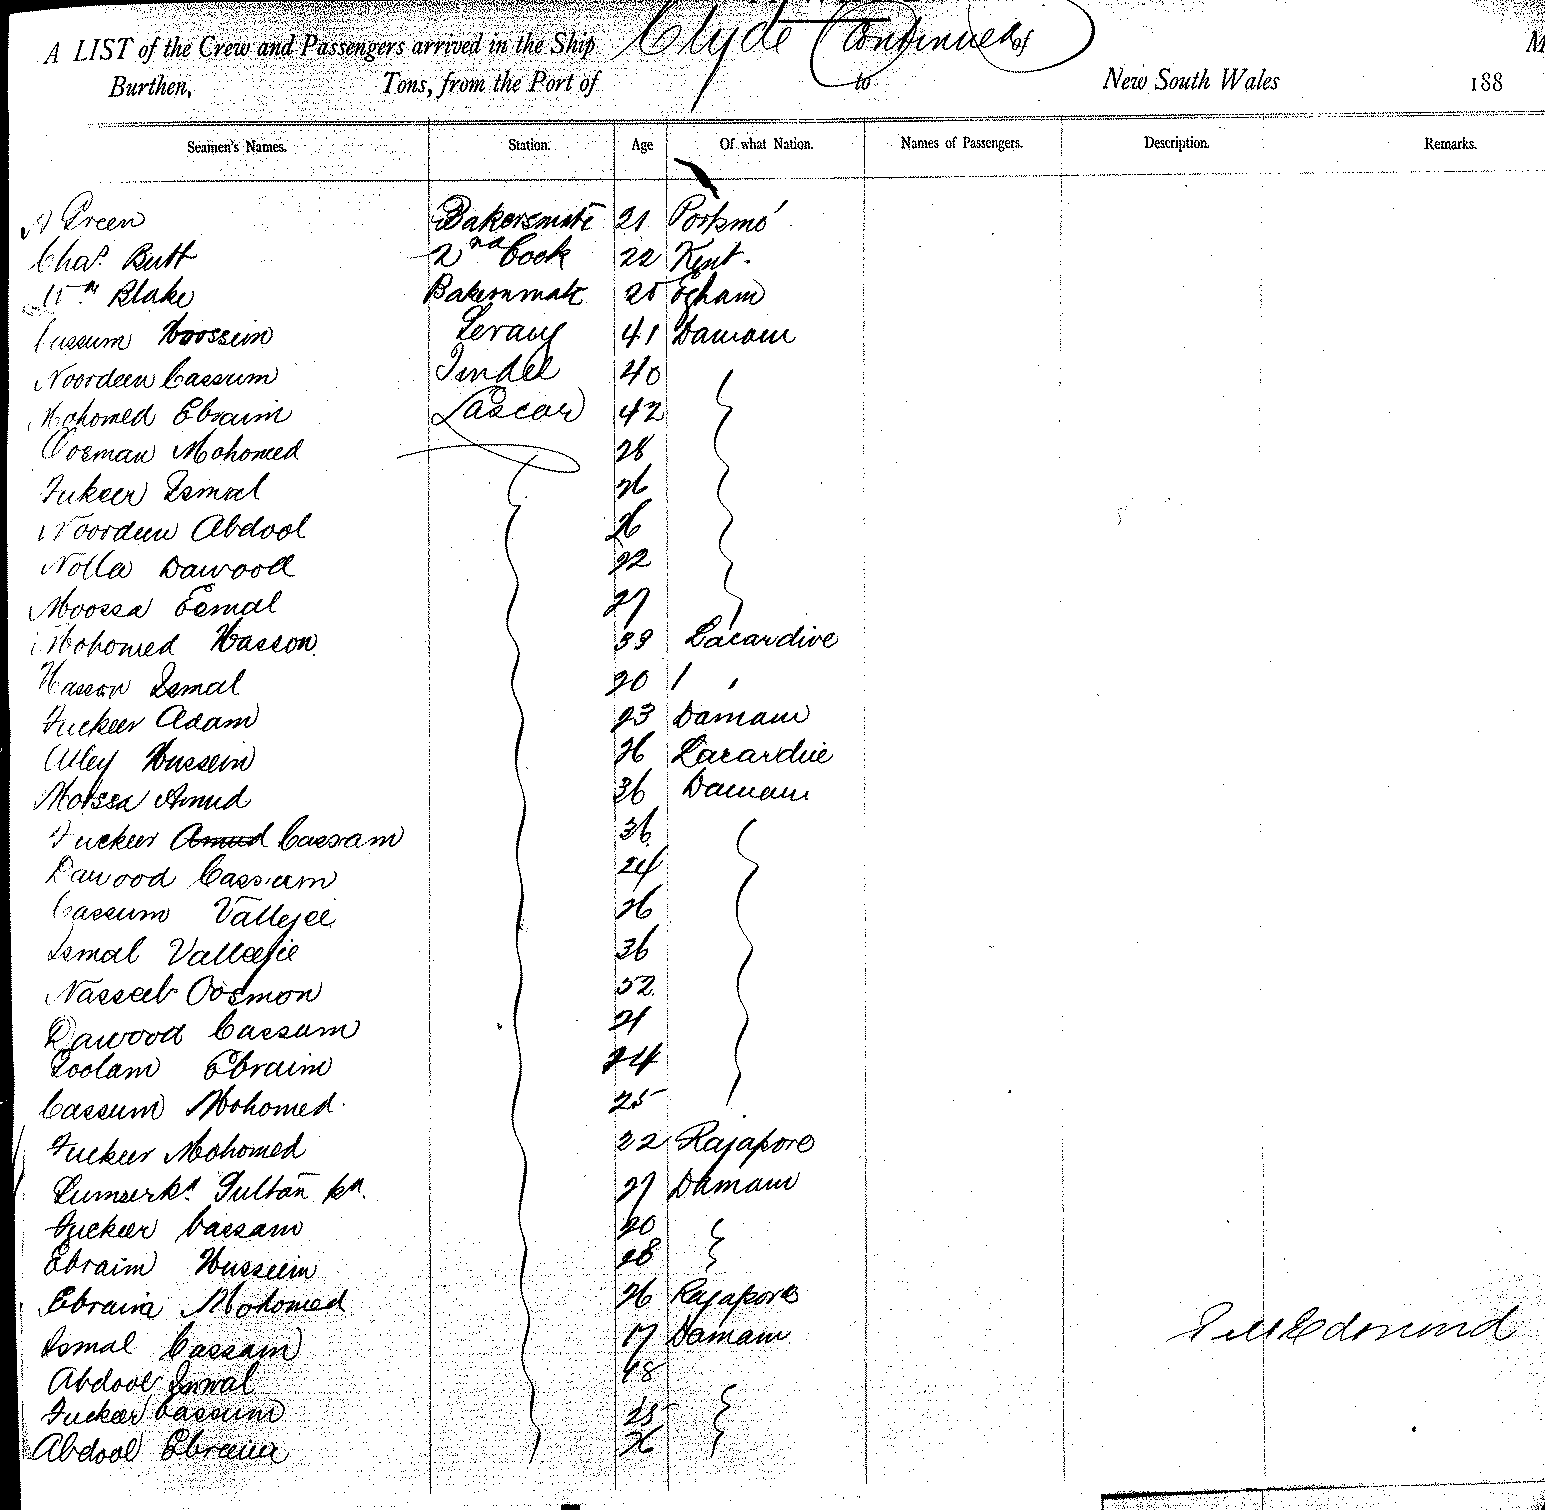 A LIST of the Crew and Passengers arrived in the Ship Clyde (Continued) of M
Burthen, Tons, from the Port of to New South Wales 188
Seamen's Names. Station. Age Of what Nation. Names of Passengers. Description. Remarks.
Green Bakersmate 21 Portsmo'
Chas. Butt 2nd Cook 22 Kent.
Wm Blake Bakersmate 25 Egham
Cassum Hoossein Serang 41 Damaun
Noordeen Cassum Tindel 40
Mohomed Ebraim Lascar 42
Oosman Mohomed 28
Fukeer Esmal 26
Noordeen Abdool 26
Nolla Dawood 22
Moossa Esmal 27
Mohomed Hasson 39 Lacardive
Hasson Esmal 20 " "
Fuckeer Adam 23 Damaun
Alley Hussein 26 Lacardive
Moossa Amud 36 Damaun
Fuckeer Amud Cassam 36
Dawood Cassum 24
Cassum Vallejee 26
Esmal Vallejie 36
Nasseeb Oosmon 32
Dawood Cassum 21
Goolam Ebraim 24
Cassum Mohomed. 25
Fuckeer Mohomed 22 Rajapore
Sultan kn. 27 Damaun
Fuckeer Cassam 20
Ebraim Hussein 28
Ebraim Mohomed 26 Rajapore
Esmal Cassam 17 Damaun
Abdool Esmal 48
Fuckeer Cassum 25
Abdool Ebraim 26